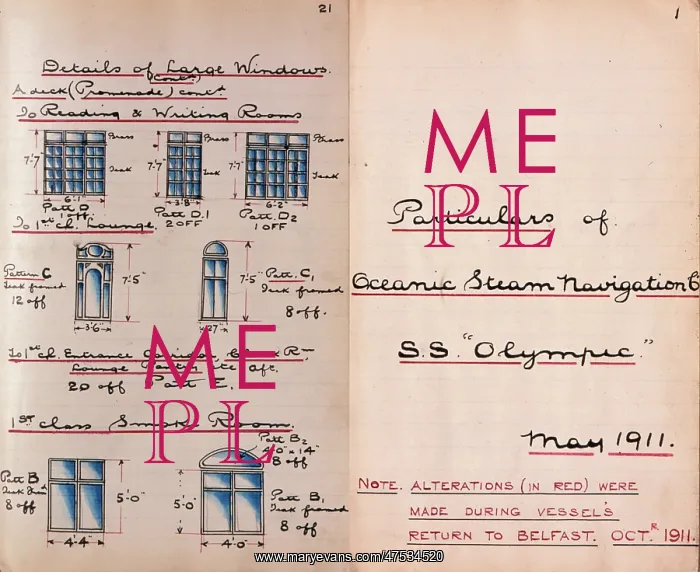 21
Details of Large Windows.
(cont.d)
A deck (Promenade) cont.d
To Reading & Writing Rooms
Brass
Brass
Brass
7'.7"
7'.7"
7'.7"
Teak
Teak
Teak
6'.1"
3'.8"
6'.2"
Patt. D
Patt. D.1
Patt. D2
1 off.
2 OFF
1 OFF
To 1st cl. Lounge.
Pattern C
Teak framed
12 off
7'.5"
7'.5"
Patt. C1
Teak framed
8 off.
3'6"
27"
To 1st cl. Entrance Corridor,
Lounge
aft.
20 off Patt E.
1ST class Smoke Room.
Patt B2
4'0" x 14"
8 off
Patt B
8 off
5'.0"
5'.0"
Patt B1
Teak framed
8 off
4'.4"
4'.0"
1
Particulars of
Oceanic Steam Navigation Co
S.S. "Olympic."
May 1911.
NOTE. ALTERATIONS (IN RED) WERE
MADE DURING VESSEL'S
RETURN TO BELFAST. OCT.R 1911.
ME
PL
ME
PL
www.maryevans.com/47534520